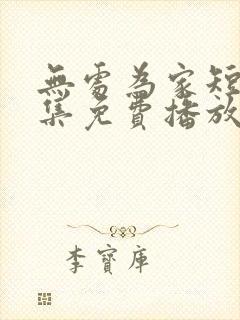 無處為家短
集免費播放
李寶庫